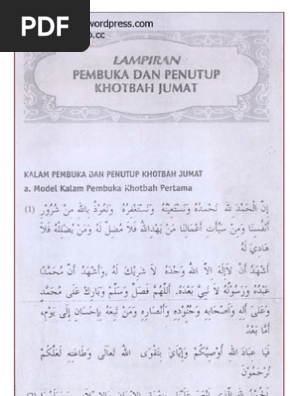 PDF
wordpress.com
.cc
LAMPIRAN
PEMBUKA DAN PENUTUP
KHOTBAH JUMAT
KALAM PEMBUKA DAN PENUTUP KHOTBAH JUMAT
a. Model Kalam Pembuka Khotbah Pertama
(1) إِنَّ الْحَمْدَ للهِ نَحْمَدُهُ وَنَسْتَعِيْنُهُ وَنَسْتَغْفِرُهُ وَنَعُوْذُ بِاللهِ مِنْ شُرُوْرِ
أَنْفُسِنَا وَمِنْ سَيِّئَاتِ أَعْمَالِنَا مَنْ يَهْدِاللهُ فَلاَ مُضِلَّ لَهُ وَمَنْ يُضْلِلْهُ فَلاَ
هَادِيَ لَهُ
أَشْهَدُ أَنْ لاَإِلَهَ إِلاَّ اللهُ وَحْدَهُ لاَ شَرِيْكَ لَهُ وَأَشْهَدُ أَنَّ مُحَمَّدًا
عَبْدُهُ وَرَسُوْلُهُ لاَ نَبِيَّ بَعْدَهُ. أَللَّهُمَّ فَصَلِّ وَسَلِّمْ وَبَارِكْ عَلَى مُحَمَّدٍ
وَعَلَى أَلِهِ وَأَصْحَابِهِ وَجُنُوْدِهِ وَأَنْصَارِهِ وَمَنْ تَبِعَهُ بِإِحْسَانٍ إِلَى يَوْمِ،
أَمَّا بَعْدُ
فَيَا عِبَادَ اللهِ أُوْصِيْكُمْ وَإِيَّايَ بِتَقْوَى اللهَ تَعَالَى وَطَاعَتِهِ لَعَلَّكُمْ
تُرْحَمُوْنَ